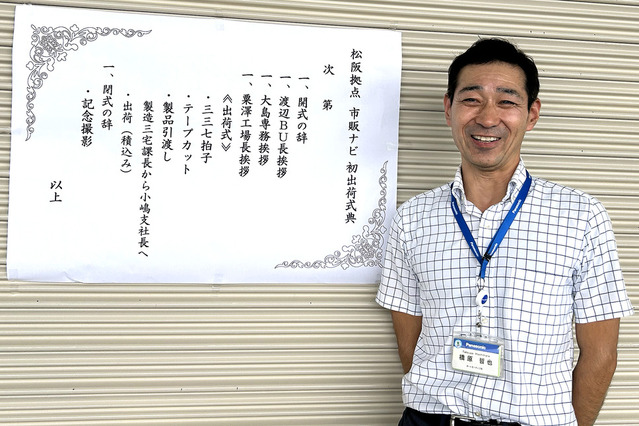 松阪拠点 市販ナビ 初出荷式典
次 第
一、開式の辞
一、渡辺BU長挨拶
一、大島専務挨拶
一、粟澤工場長挨拶
《出荷式》
・三三七拍子
・テープカット
・製品引渡し
製造三宅課長から小嶋支社長へ
・出荷(積込み)
一、閉式の辞
・記念撮影
以上
Panasonic